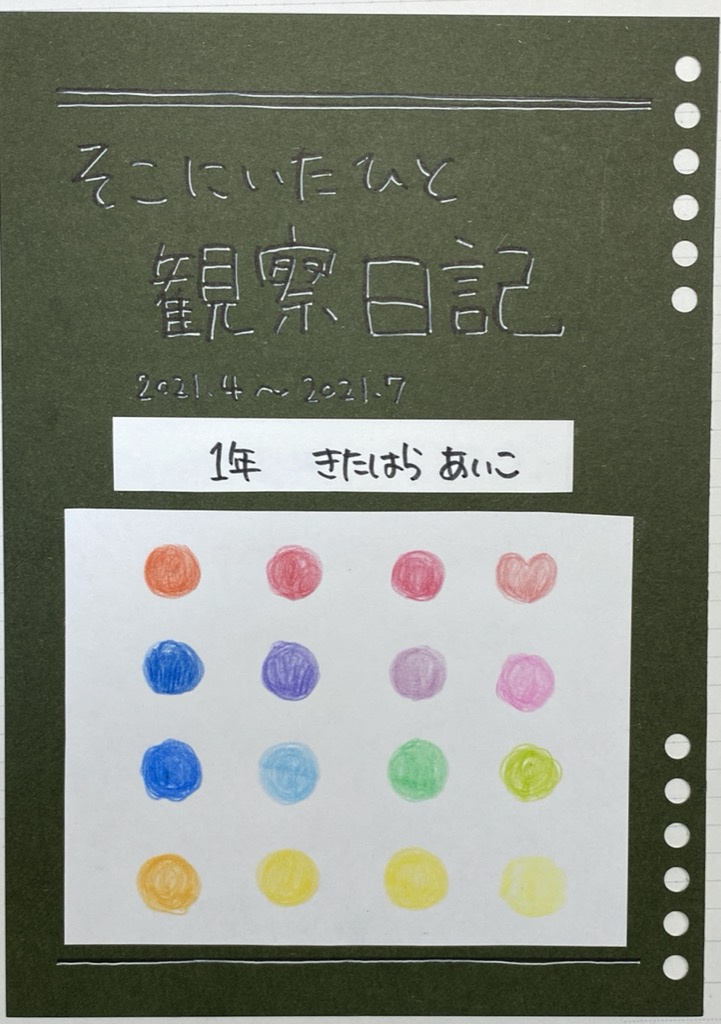 そこにいたひと
観察日記
2021.4～2021.7
1年 きたはら あいこ